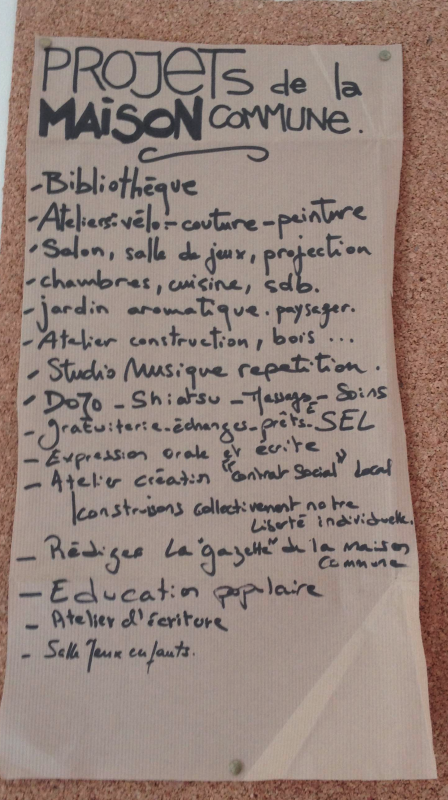 PROJETS de la
MAISON COMMUNE.
- Bibliothèque
- Ateliers: vélo - couture - peinture
- Salon, salle de jeux, projection
- chambres, cuisine, sdb.
- jardin aromatique. paysager.
- Atelier construction, bois ...
- Studio Musique repetition.
- DOJO - Shiatsu - Massage - Soins
- gratuiterie - échanges - prêts - SEL
- Expression orale et écrite
- Atelier création "contrat social" local
construisons collectivement notre
liberté individuelle.
- Rédiger la "gazette" de la maison
commune
- Education populaire
- Atelier d'écriture
- Salle Jeux enfants.